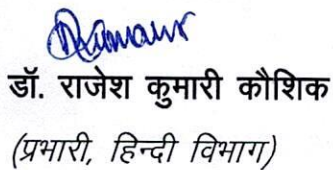 डॉ. राजेश कुमारी कौशिक
(प्रभारी, हिन्दी विभाग)